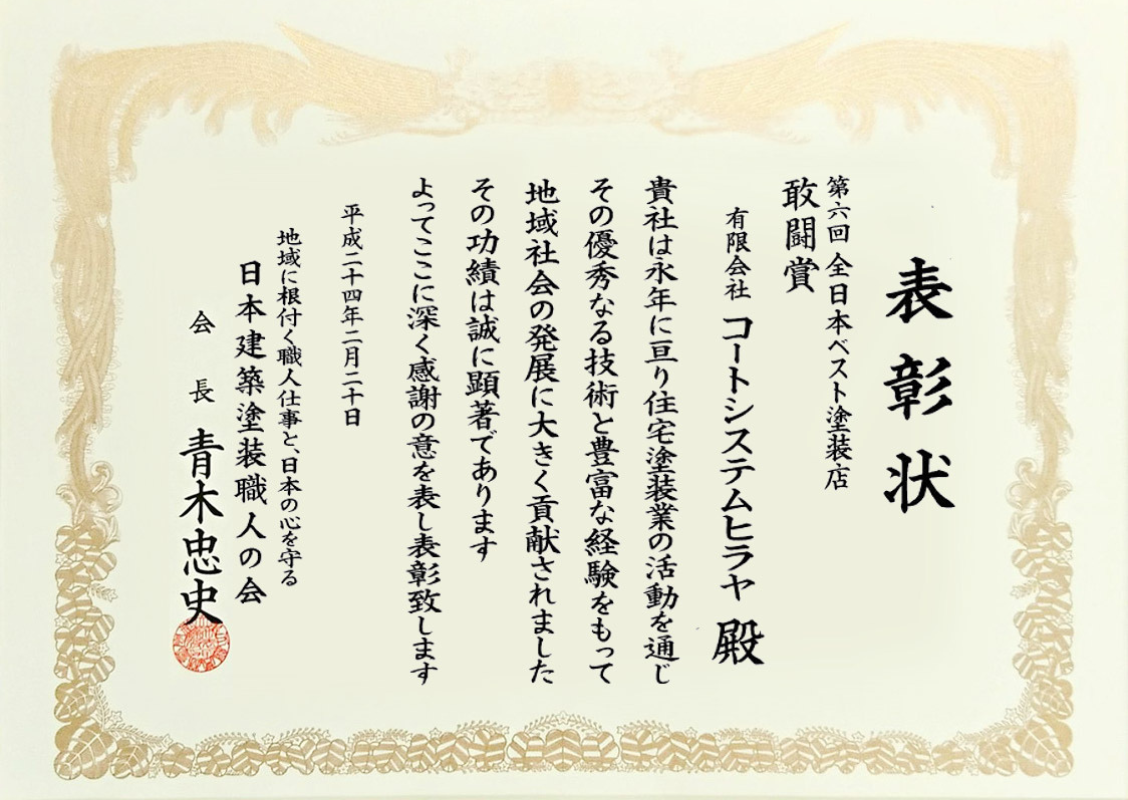 表彰状
第六回 全日本ベスト塗装店
敢闘賞
有限会社 コートシステムヒラヤ 殿
貴社は永年に亘り住宅塗装業の活動を通じ
その優秀なる技術と豊富な経験をもって
地域社会の発展に大きく貢献されました
その功績は誠に顕著であります
よってここに深く感謝の意を表し表彰致します
平成二十四年二月二十日
地域に根付く職人仕事と、日本の心を守る
日本建築塗装職人の会
会長 青木忠史